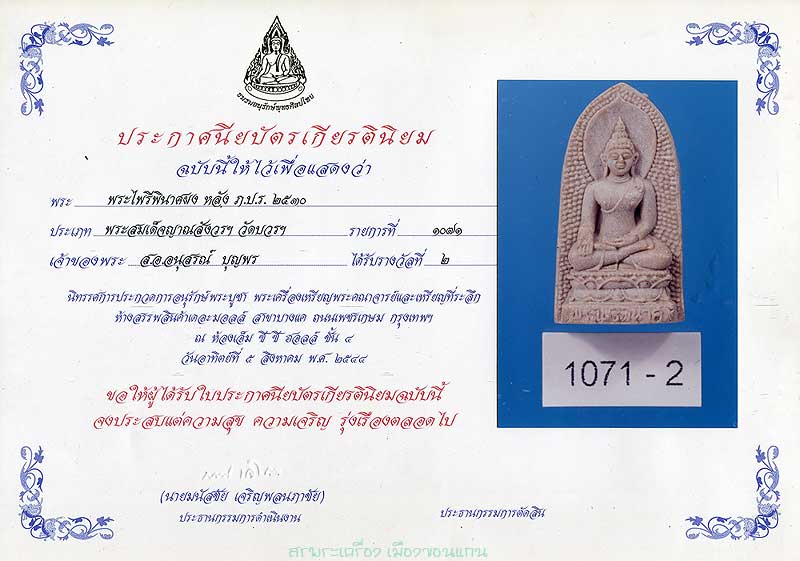 ชมรมอนุรักษ์พุทธศิลป์ไทย
ประกาศนียบัตรเกียรตินิยม
ฉบับนี้ให้ไว้เพื่อแสดงว่า
พระ พระไพรีพินาศผง หลัง ภ.ป.ร. ๒๕๓๐
ประเภท พระสมเด็จญาณสังวรฯ วัดบวรฯ รายการที่ ๑๐๗๑
เจ้าของพระ ส.อ.อนุสรณ์ บุญพร ได้รับรางวัลที่ ๒
นิทรรศการประกวดการอนุรักษ์พระบูชา พระเครื่องเหรียญพระคณาจารย์และเหรียญที่ระลึก
ห้างสรรพสินค้าเดอะมอลล์ สาขาบางแค ถนนเพชรเกษม กรุงเทพฯ
ณ ห้องเอ็ม ซี ซี ฮอลล์ ชั้น ๔
วันอาทิตย์ที่ ๕ สิงหาคม พ.ศ. ๒๕๔๔
ขอให้ผู้ได้รับใบประกาศนียบัตรเกียรตินิยมฉบับนี้
จงประสบแต่ความสุข ความเจริญ รุ่งเรืองตลอดไป
(นายมนัสชัย เจริญพลนภาชัย)
ประธานกรรมการดำเนินงาน
ประธานกรรมการตัดสิน
พระไพรีพินาศ
1071 - 2
สรพระเครื่อง เมืองขอนแก่น